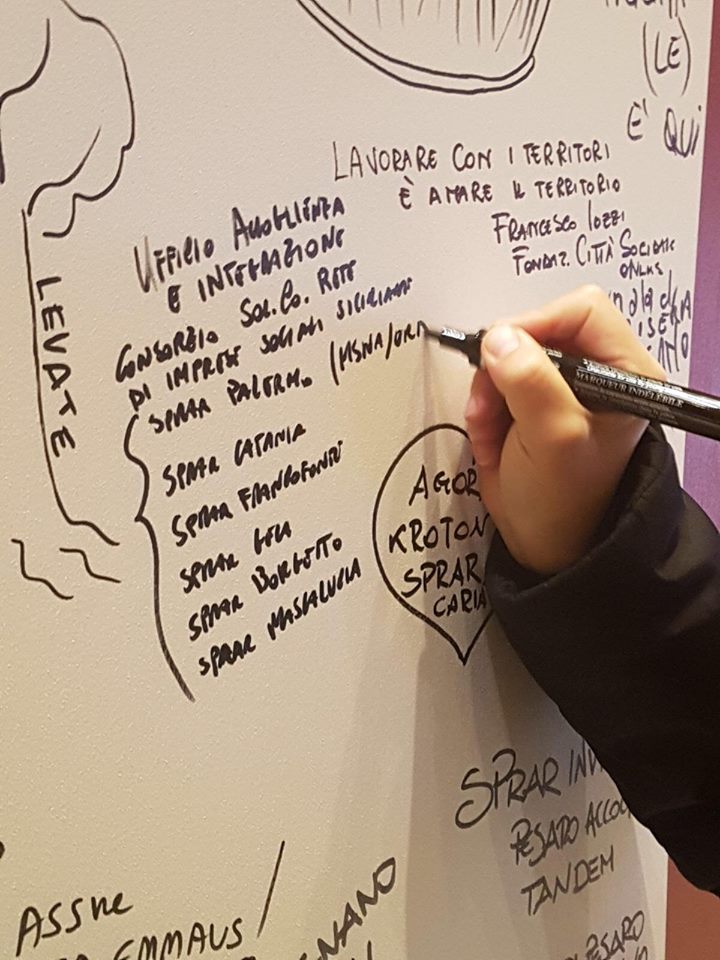 (LE)
E' QUI
LAVORARE CON I TERRITORI
È AMARE IL TERRITORIO
FRANCESCO IOZZI
FONDAZ. CITTÀ SOLIDALE
ONLUS
UFFICIO ACCOGLIENZA
E INTEGRAZIONE
CONSORZIO SOL.CO. RETE
DI IMPRESE SOCIALI SICILIANE
SPRAR PALERMO (MSNA/ORD
SPRAR CATANIA
SPRAR FRANCOFONTE
SPRAR GELA
SPRAR BORGETTO
SPRAR MASCALUCIA
LEVATE
MARQUEUR INDÉLÉBILE
AGOR
KROTON
SPRAR
CARIA
SPRAR
PESARO
TANDEM
EMMAUS
PESARO